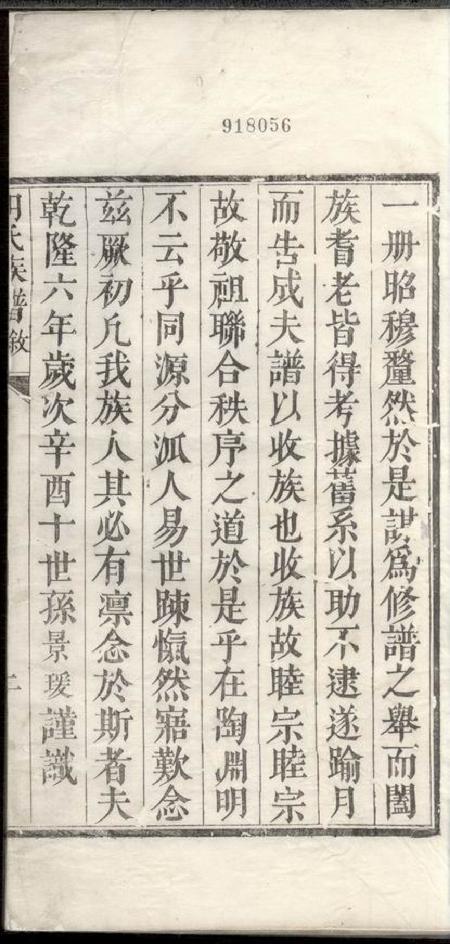 918056
一册昭穆釐然於是謀為修譜之舉而闔
族耆老皆得考據舊系以助不逮遂踰月
而告成夫譜以收族也收族故睦宗睦宗
故敬祖聯合秩序之道於是乎在陶淵明
不云乎同源分派人易世疎慨然寤歎念
茲厥初凡我族人其必有凛念於斯者夫
乾隆六年歲次辛酉十世孫景瑗謹識
氏族譜敘
二